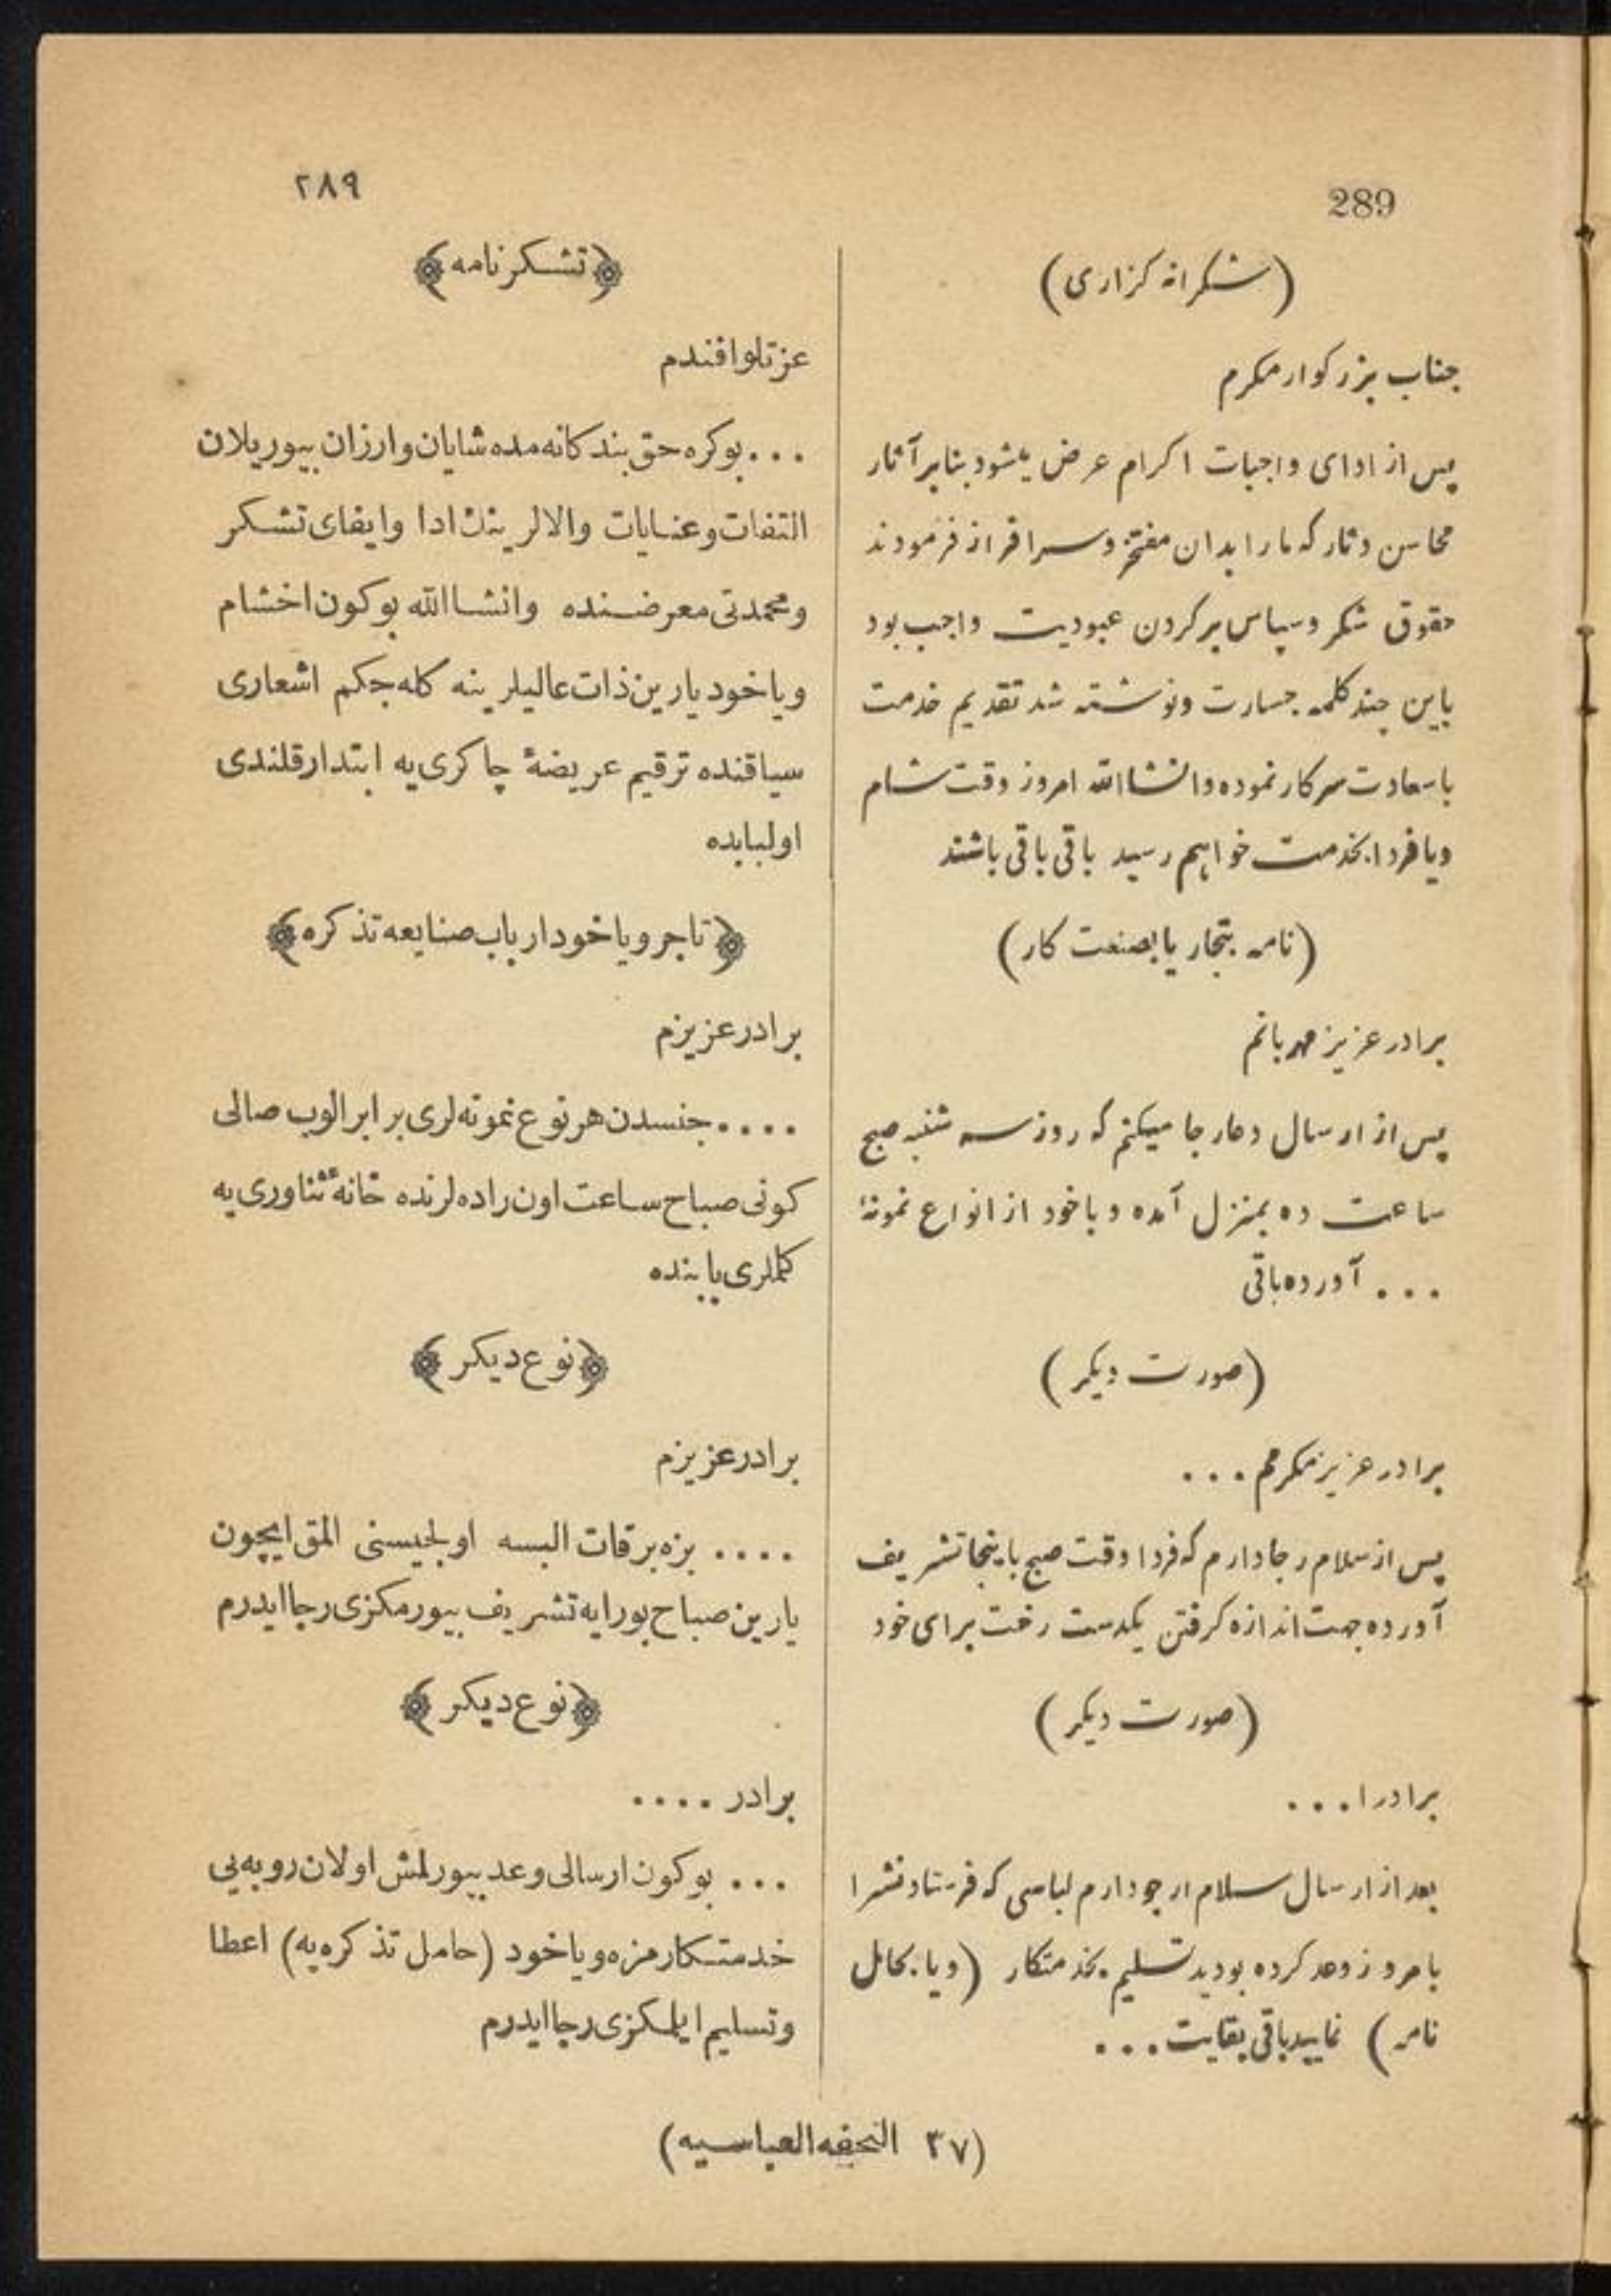 289
(شکرانه کزاری)
جناب بزرکوار مکرم
پس از ادای واجبات اکرام عرض یشود بنابر آثار
محاسن وثار که مارا بدان مفتخر وسرافراز فرمودند
حقوق شکر وسپاس بر کردن عبودیت واجب بود
باین چند کلمه جسارت ونوشته شد تقدیم خدمت
باسعادت سرکار نموده وانشاالله امروز وقت شام
ویا فردا بخدمت خواهم رسید باقی باقی باشند
(نامه بتجار یا بصنعت کار)
برادر عزیز مهربانم
پس از ارسال دعا رجا میکنم که روز سه شنبه صبح
ساعت ده بمنزل آمده وباخود از انواع نمونهٔ
... آورده باقی
(صورت دیکر)
برادر عزیز مکرمم ...
پس از سلام رجا دارم که فردا وقت صبح باینجا تشریف
آورده جهت اندازه کرفتن یکدست رخت برای خود
(صورت دیکر)
برادرا ...
بعد از ارسال سلام ارجو دارم لباسی که فرستادنشرا
بامروز وعد کرده بودید تسلیم بخدمتکار (ویا بحامل
نامه) نمایید باقی بقایت ...
٢٨٩
﴿تشکرنامه﴾
عزتلو افندم
... بوکره حق بندکانه مده شایان وارزان بیوریلان
التفات وعنایات والالرینك ادا وایفای تشکر
ومحمدتی معرضنده وانشاالله بوکون اخشام
ویاخود یارین ذات عالیلرینه کله جکم اشعاری
سیاقنده ترقیم عریضهٔ چاکری یه ابتدار قلندی
اولبابده
﴿تاجر ویاخود ارباب صنایعه تذکره﴾
برادر عزیزم
.... جنسدن هر نوع نمونه لری برابر الوب صالی
کونی صباح ساعت اون راده لرنده خانهٔ ثناوری یه
کلملری یابنده
﴿نوع دیکر﴾
برادر عزیزم
.... بزه برقات البسه اولچیسنی المق ایچون
یارین صباح بورایه تشریف بیورمکزی رجا ایدرم
﴿نوع دیکر﴾
برادر ....
... بوکون ارسالی وعد بیورلمش اولان روبه یی
خدمتکارمزه ویاخود (حامل تذکره یه) اعطا
وتسلیم ایلمکزی رجا ایدرم
(٣٧ التحفه العباسیه)